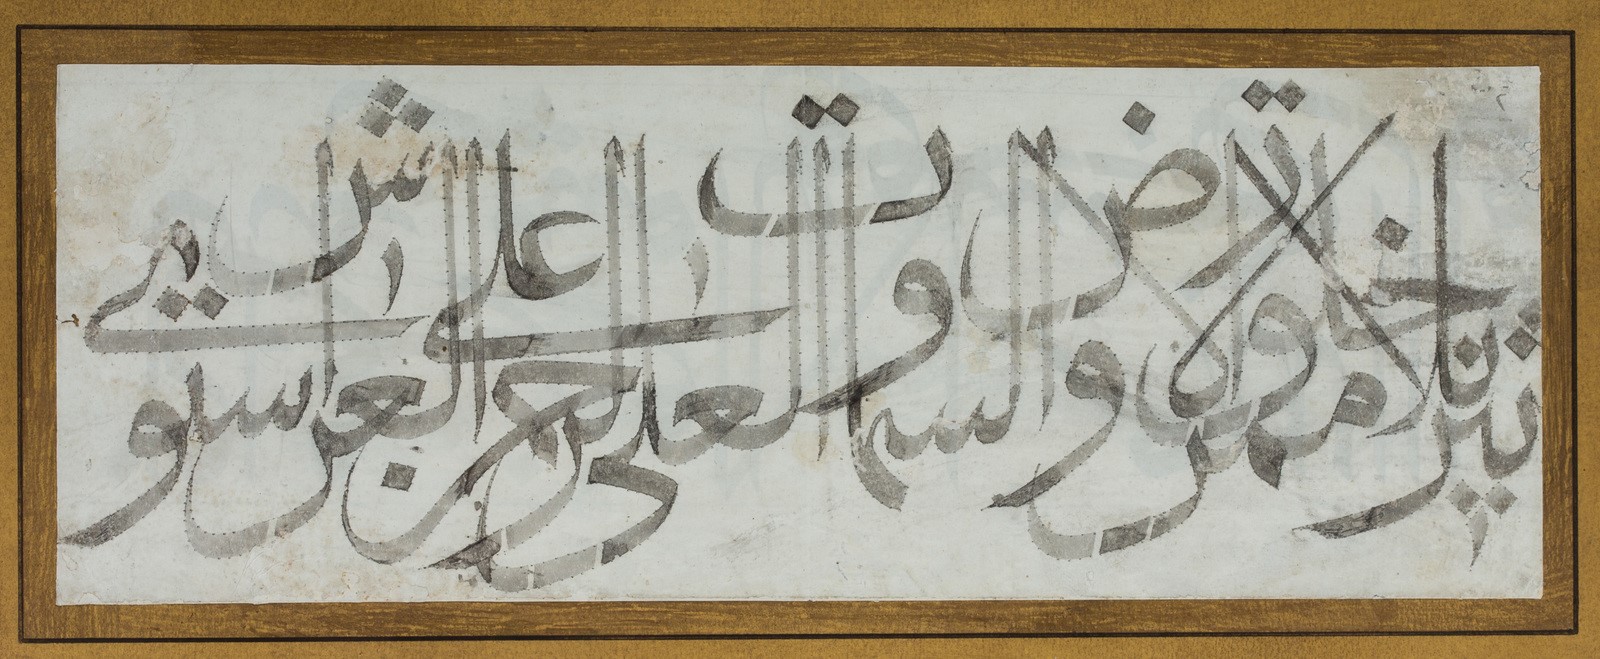 تنزيلا ممن خلق الارض والسموات العلى الرحمن على العرش استوى